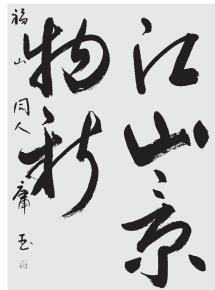 江山景
物新
福山同人庸玉